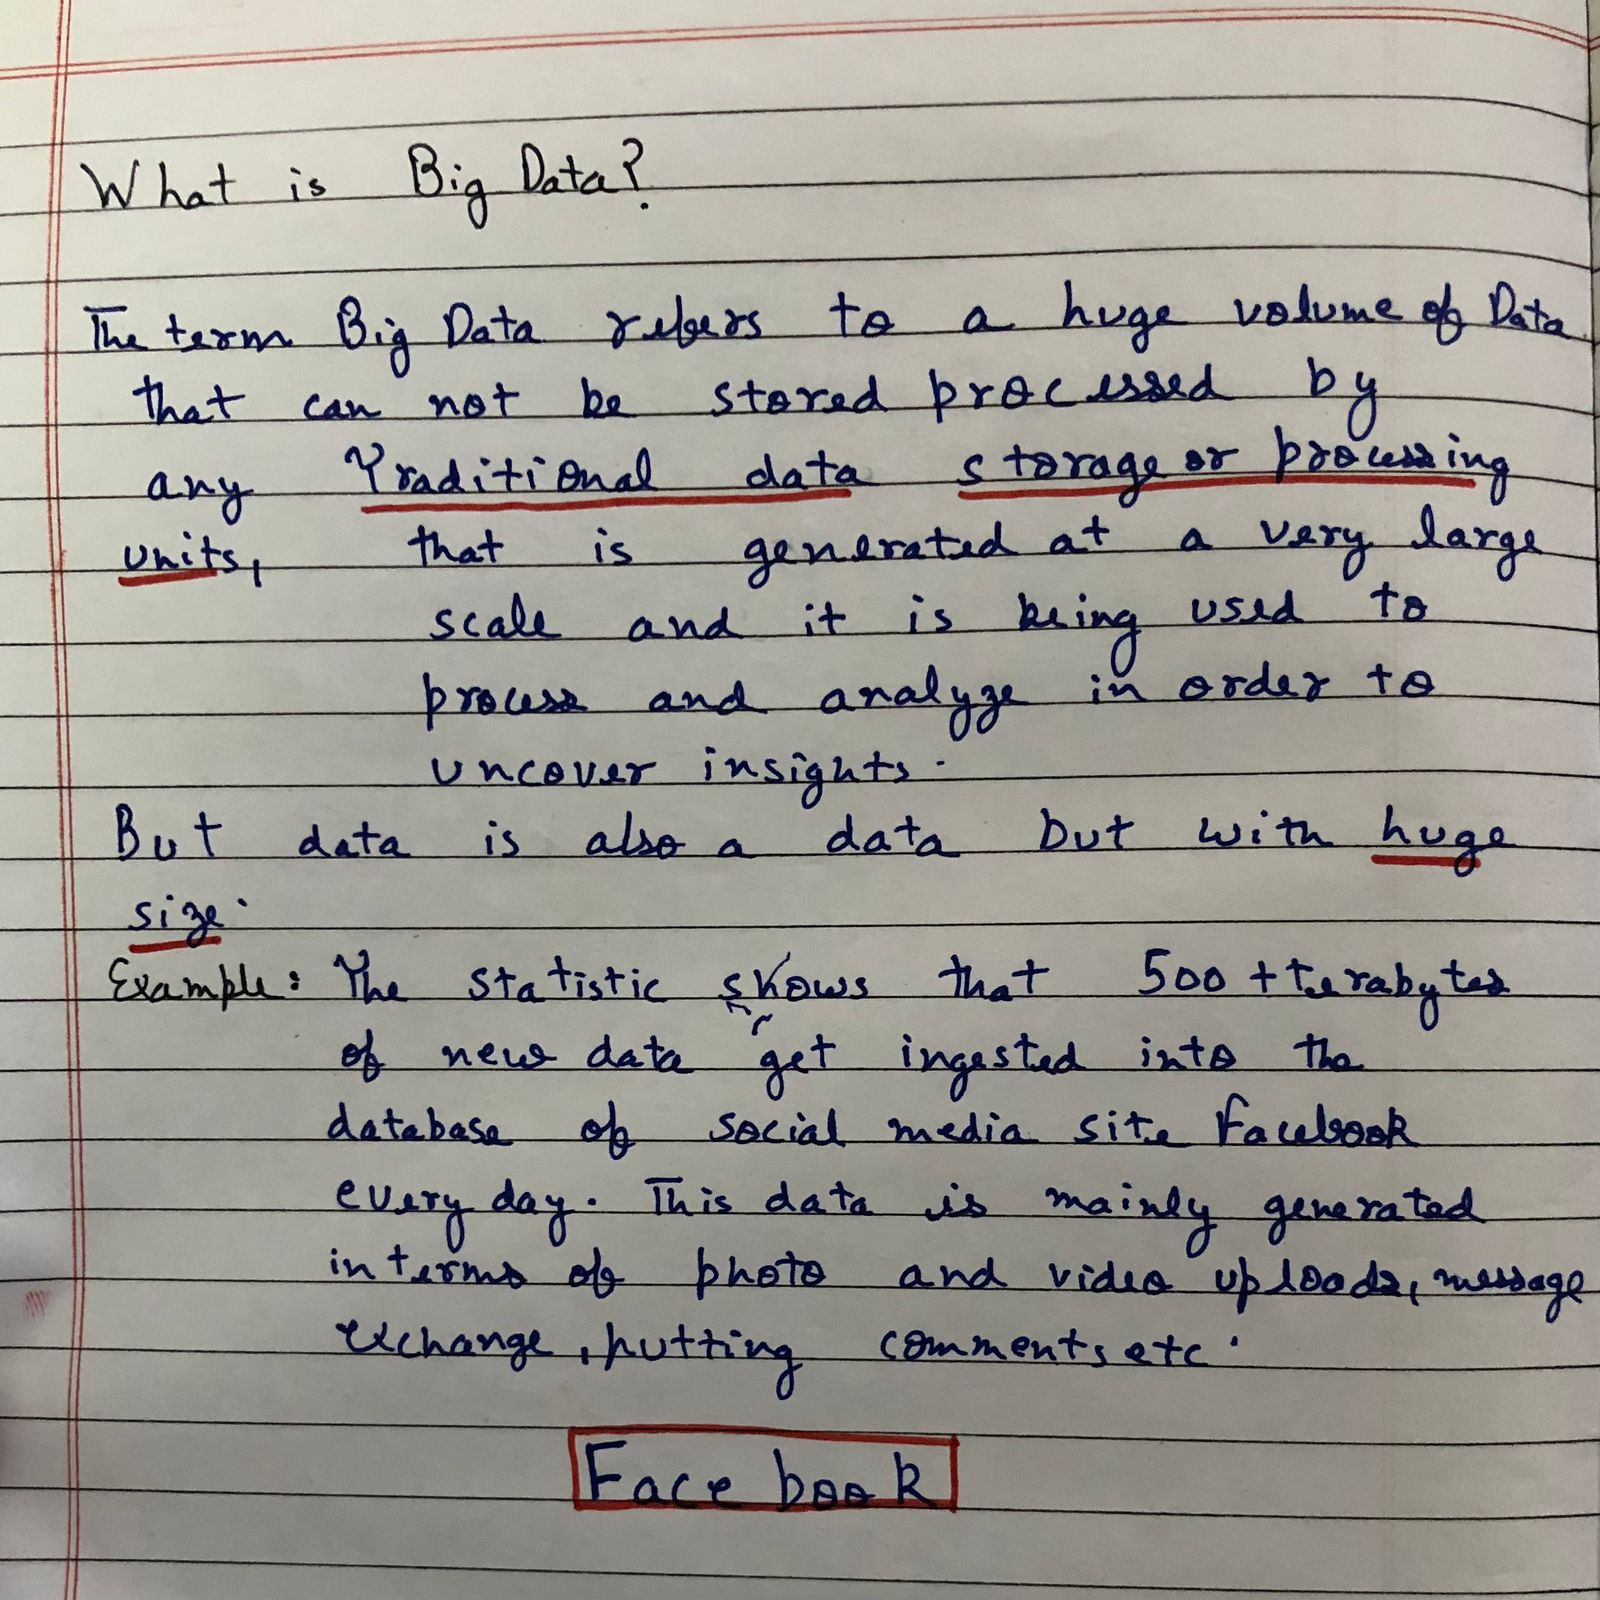 What is Big Data?
The term Big Data refers to a huge volume of Data
that can not be stored processed by
any Traditional data storage or processing
units, that is generated at a very large
scale and it is being used to
process and analyze in order to
uncover insights.
But data is also a data but with huge
size.
Example: The statistic shows that 500+ terabytes
of new data get ingested into the
database of social media site Facebook
every day. This data is mainly generated
in terms of photo and video uploads, message
exchange, putting comments etc.
Face book